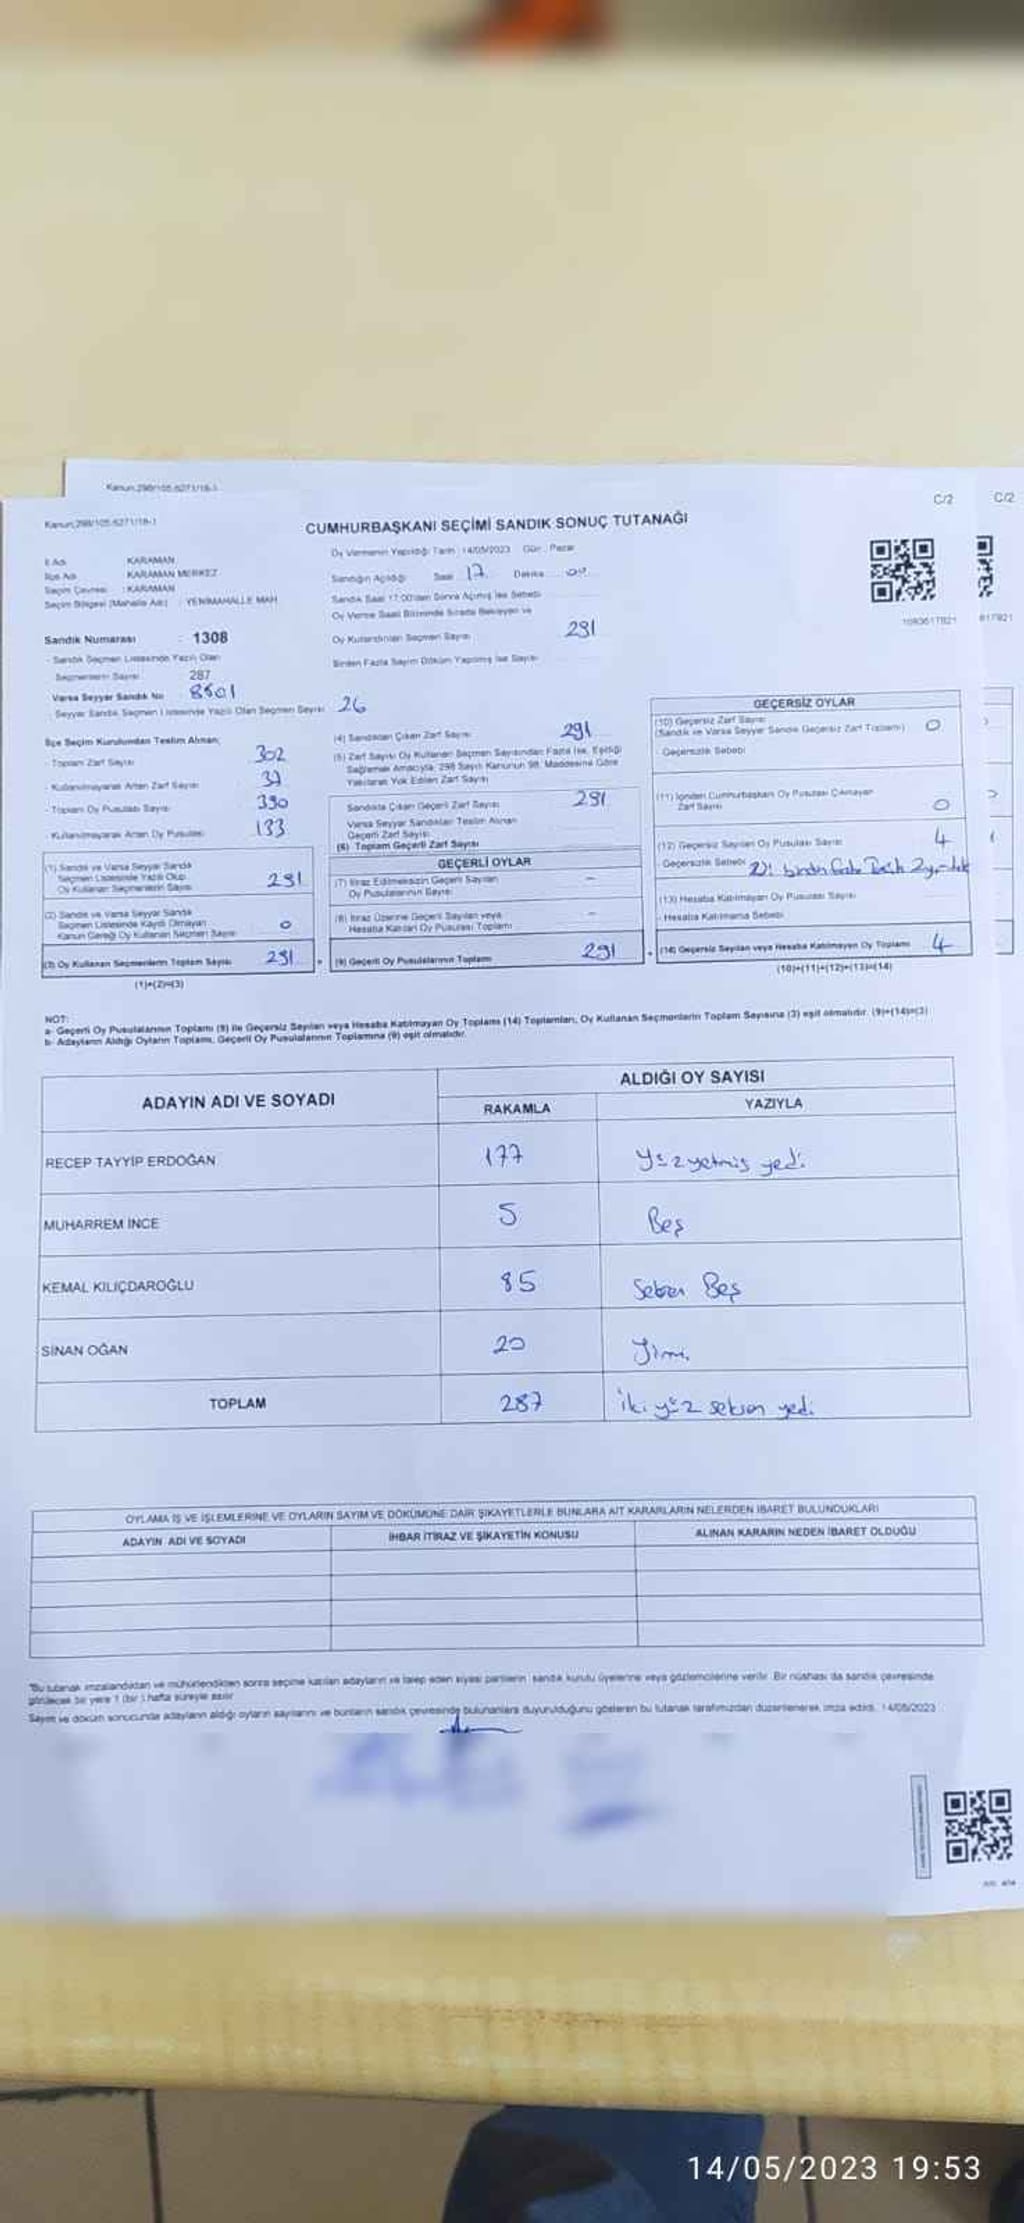 Kanun:298/105-6271/18-1
C/2
C/2
Kanun:298/105-6271/18-1
CUMHURBAŞKANI SEÇİMİ SANDIK SONUÇ TUTANAĞI
İl Adı KARAMAN
İlçe Adı KARAMAN MERKEZ
Seçim Çevresi : KARAMAN
Seçim Bölgesi (Mahalle Adı) : YENİMAHALLE MAH
Sandık Numarası : 1308
- Sandık Seçmen Listesinde Yazılı Olan
Seçmenlerin Sayısı 287
Varsa Seyyar Sandık No 8501
Seyyar Sandık Seçmen Listesinde Yazılı Olan Seçmen Sayısı 26
Oy Vermenin Yapıldığı Tarih : 14/05/2023 Gün : Pazar
Sandığın Açıldığı Saat 17 Dakika 00
Sandık Saat 17:00'den Sonra Açılmış İse Sebebi
Oy Verme Saati Bitiminde Sırada Bekleyen ve
Oy Kullandırılan Seçmen Sayısı 291
Birden Fazla Sayım Döküm Yapılmış İse Sayısı
1083617821
817821
İlçe Seçim Kurulundan Teslim Alınan;
- Toplam Zarf Sayısı 302
- Kullanılmayarak Artan Zarf Sayısı
- Toplam Oy Pusulası Sayısı 390
- Kullanılmayarak Artan Oy Pusulası 133
(1) Sandık ve Varsa Seyyar Sandık
Seçmen Listesinde Yazılı Olup
Oy Kullanan Seçmenlerin Sayısı 291
(2) Sandık ve Varsa Seyyar Sandık
Seçmen Listesinde Kayıtlı Olmayan
Kanun Gereği Oy Kullanan Seçmen Sayısı 0
(3) Oy Kullanan Seçmenlerin Toplam Sayısı 291
(1)+(2)=(3)
(4) Sandıktan Çıkan Zarf Sayısı 291
(5) Zarf Sayısı Oy Kullanan Seçmen Sayısından Fazla İse, Eşitliği
Sağlamak Amacıyla, 298 Sayılı Kanunun 98. Maddesine Göre
Yakılarak Yok Edilen Zarf Sayısı
Sandıkta Çıkan Geçerli Zarf Sayısı 291
Varsa Seyyar Sandıktan Teslim Alınan
Geçerli Zarf Sayısı
(6) Toplam Geçerli Zarf Sayısı
GEÇERLİ OYLAR
(7) İtiraz Edilmeksizin Geçerli Sayılan
Oy Pusulalarının Sayısı -
(8) İtiraz Üzerine Geçerli Sayılan veya
Hesaba Katılan Oy Pusulası Toplamı -
(9) Geçerli Oy Pusulalarının Toplamı 291
GEÇERSİZ OYLAR
(10) Geçersiz Zarf Sayısı
(Sandık ve Varsa Seyyar Sandık Geçersiz Zarf Toplamı) 0
- Geçersizlik Sebebi
(11) İçinden Cumhurbaşkanı Oy Pusulası Çıkmayan
Zarf Sayısı 0
(12) Geçersiz Sayılan Oy Pusulası Sayısı 4
- Geçersizlik Sebebi birden fazla
(13) Hesaba Katılmayan Oy Pusulası Sayısı
- Hesaba Katılmama Sebebi
(14) Geçersiz Sayılan veya Hesaba Katılmayan Oy Toplamı 4
(10)+(11)+(12)+(13)=(14)
NOT:
a- Geçerli Oy Pusulalarının Toplamı (9) ile Geçersiz Sayılan veya Hesaba Katılmayan Oy Toplamı (14) Toplamları, Oy Kullanan Seçmenlerin Toplam Sayısına (3) eşit olmalıdır. (9)+(14)=(3)
b- Adayların Aldığı Oyların Toplamı, Geçerli Oy Pusulalarının Toplamına (9) eşit olmalıdır.
ADAYIN ADI VE SOYADI
ALDIĞI OY SAYISI
RAKAMLA YAZIYLA
RECEP TAYYİP ERDOĞAN 177 Yüzyetmiş yedi
MUHARREM İNCE 5 Beş
KEMAL KILIÇDAROĞLU 85 Seksen Beş
SİNAN OĞAN 20 Yirmi
TOPLAM 287 iki yüz seksen yedi
OYLAMA İŞ VE İŞLEMLERİNE VE OYLARIN SAYIM VE DÖKÜMÜNE DAİR ŞİKAYETLERLE BUNLARA AİT KARARLARIN NELERDEN İBARET BULUNDUKLARI
ADAYIN ADI VE SOYADI İHBAR İTİRAZ VE ŞİKAYETİN KONUSU ALINAN KARARIN NEDEN İBARET OLDUĞU
"Bu tutanak imzalandıktan ve mühürlendikten sonra seçime katılan adayların ve talep eden siyasi partilerin sandık kurulu üyelerine veya gözlemcilerine verilir. Bir nüshası da sandık çevresinde
görülecek bir yere 1 (bir ) hafta süreyle asılır
Sayım ve döküm sonucunda adayların aldığı oyların sayılarını ve bunların sandık çevresinde bulunanlara duyurulduğunu gösteren bu tutanak tarafımızdan düzenlenerek imza edildi. 14/05/2023
14/05/2023 19:53